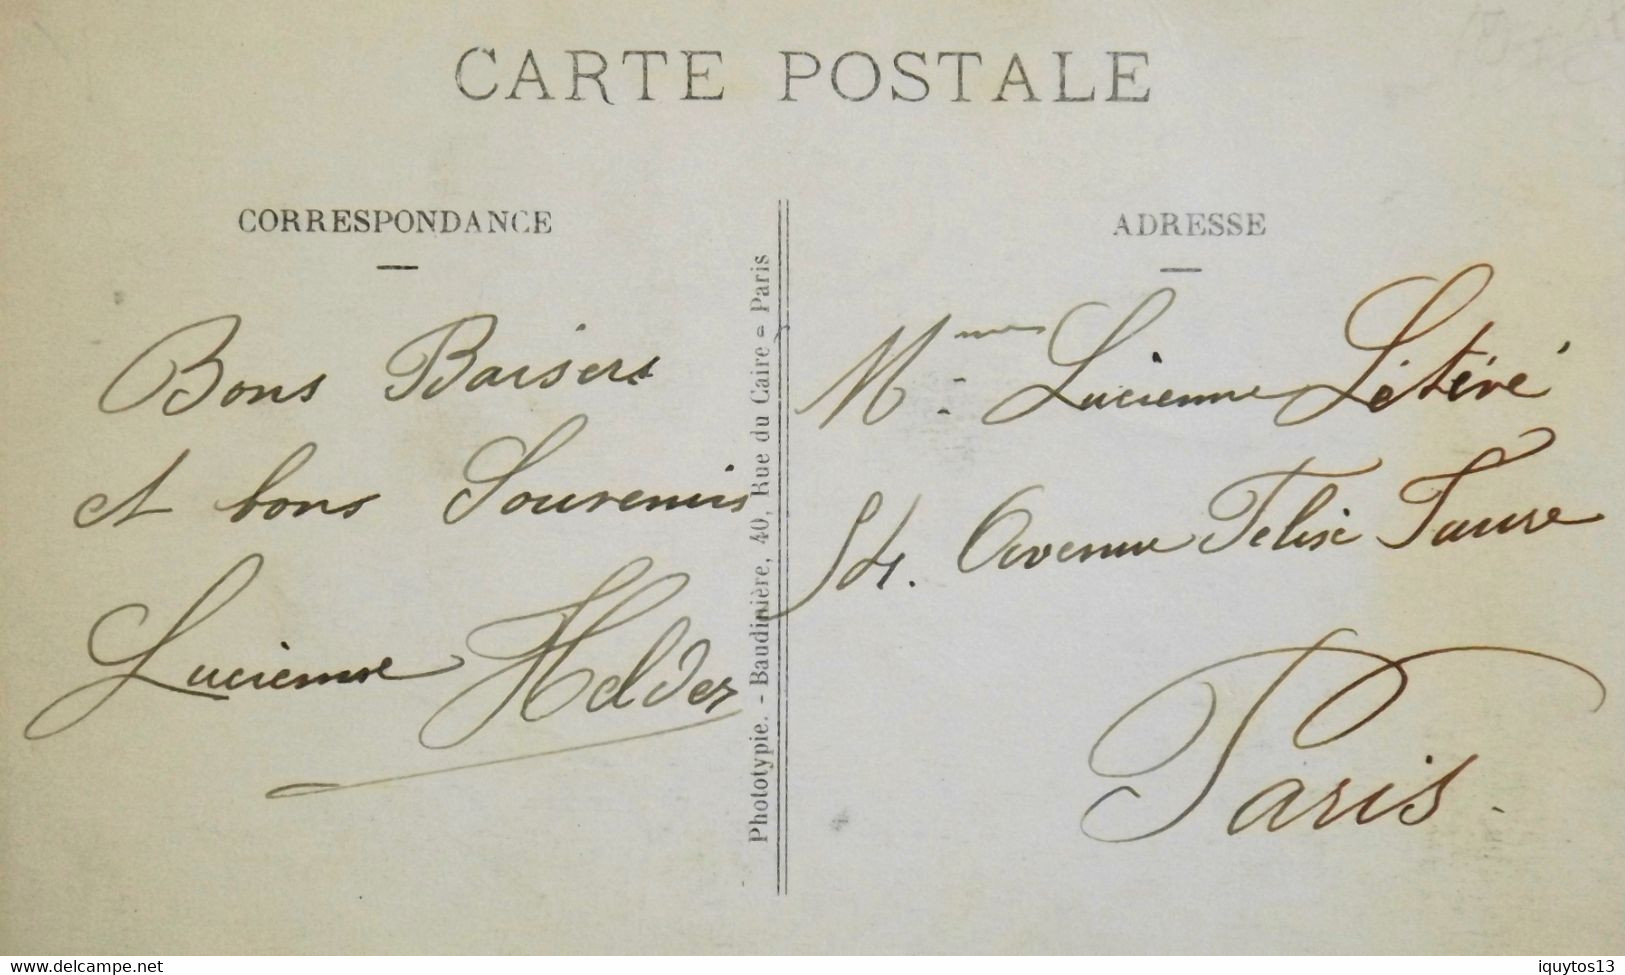 CARTE POSTALE
CORRESPONDANCE
Bons Baisers
et bons Souvenirs
Lucienne Helder
Phototypie. - Baudinière, 40, Rue du Caire = Paris
ADRESSE
Mme. Lucienne Létévé
54. Avenue Felix Faure
Paris.
www.delcampe.net
iquytos13